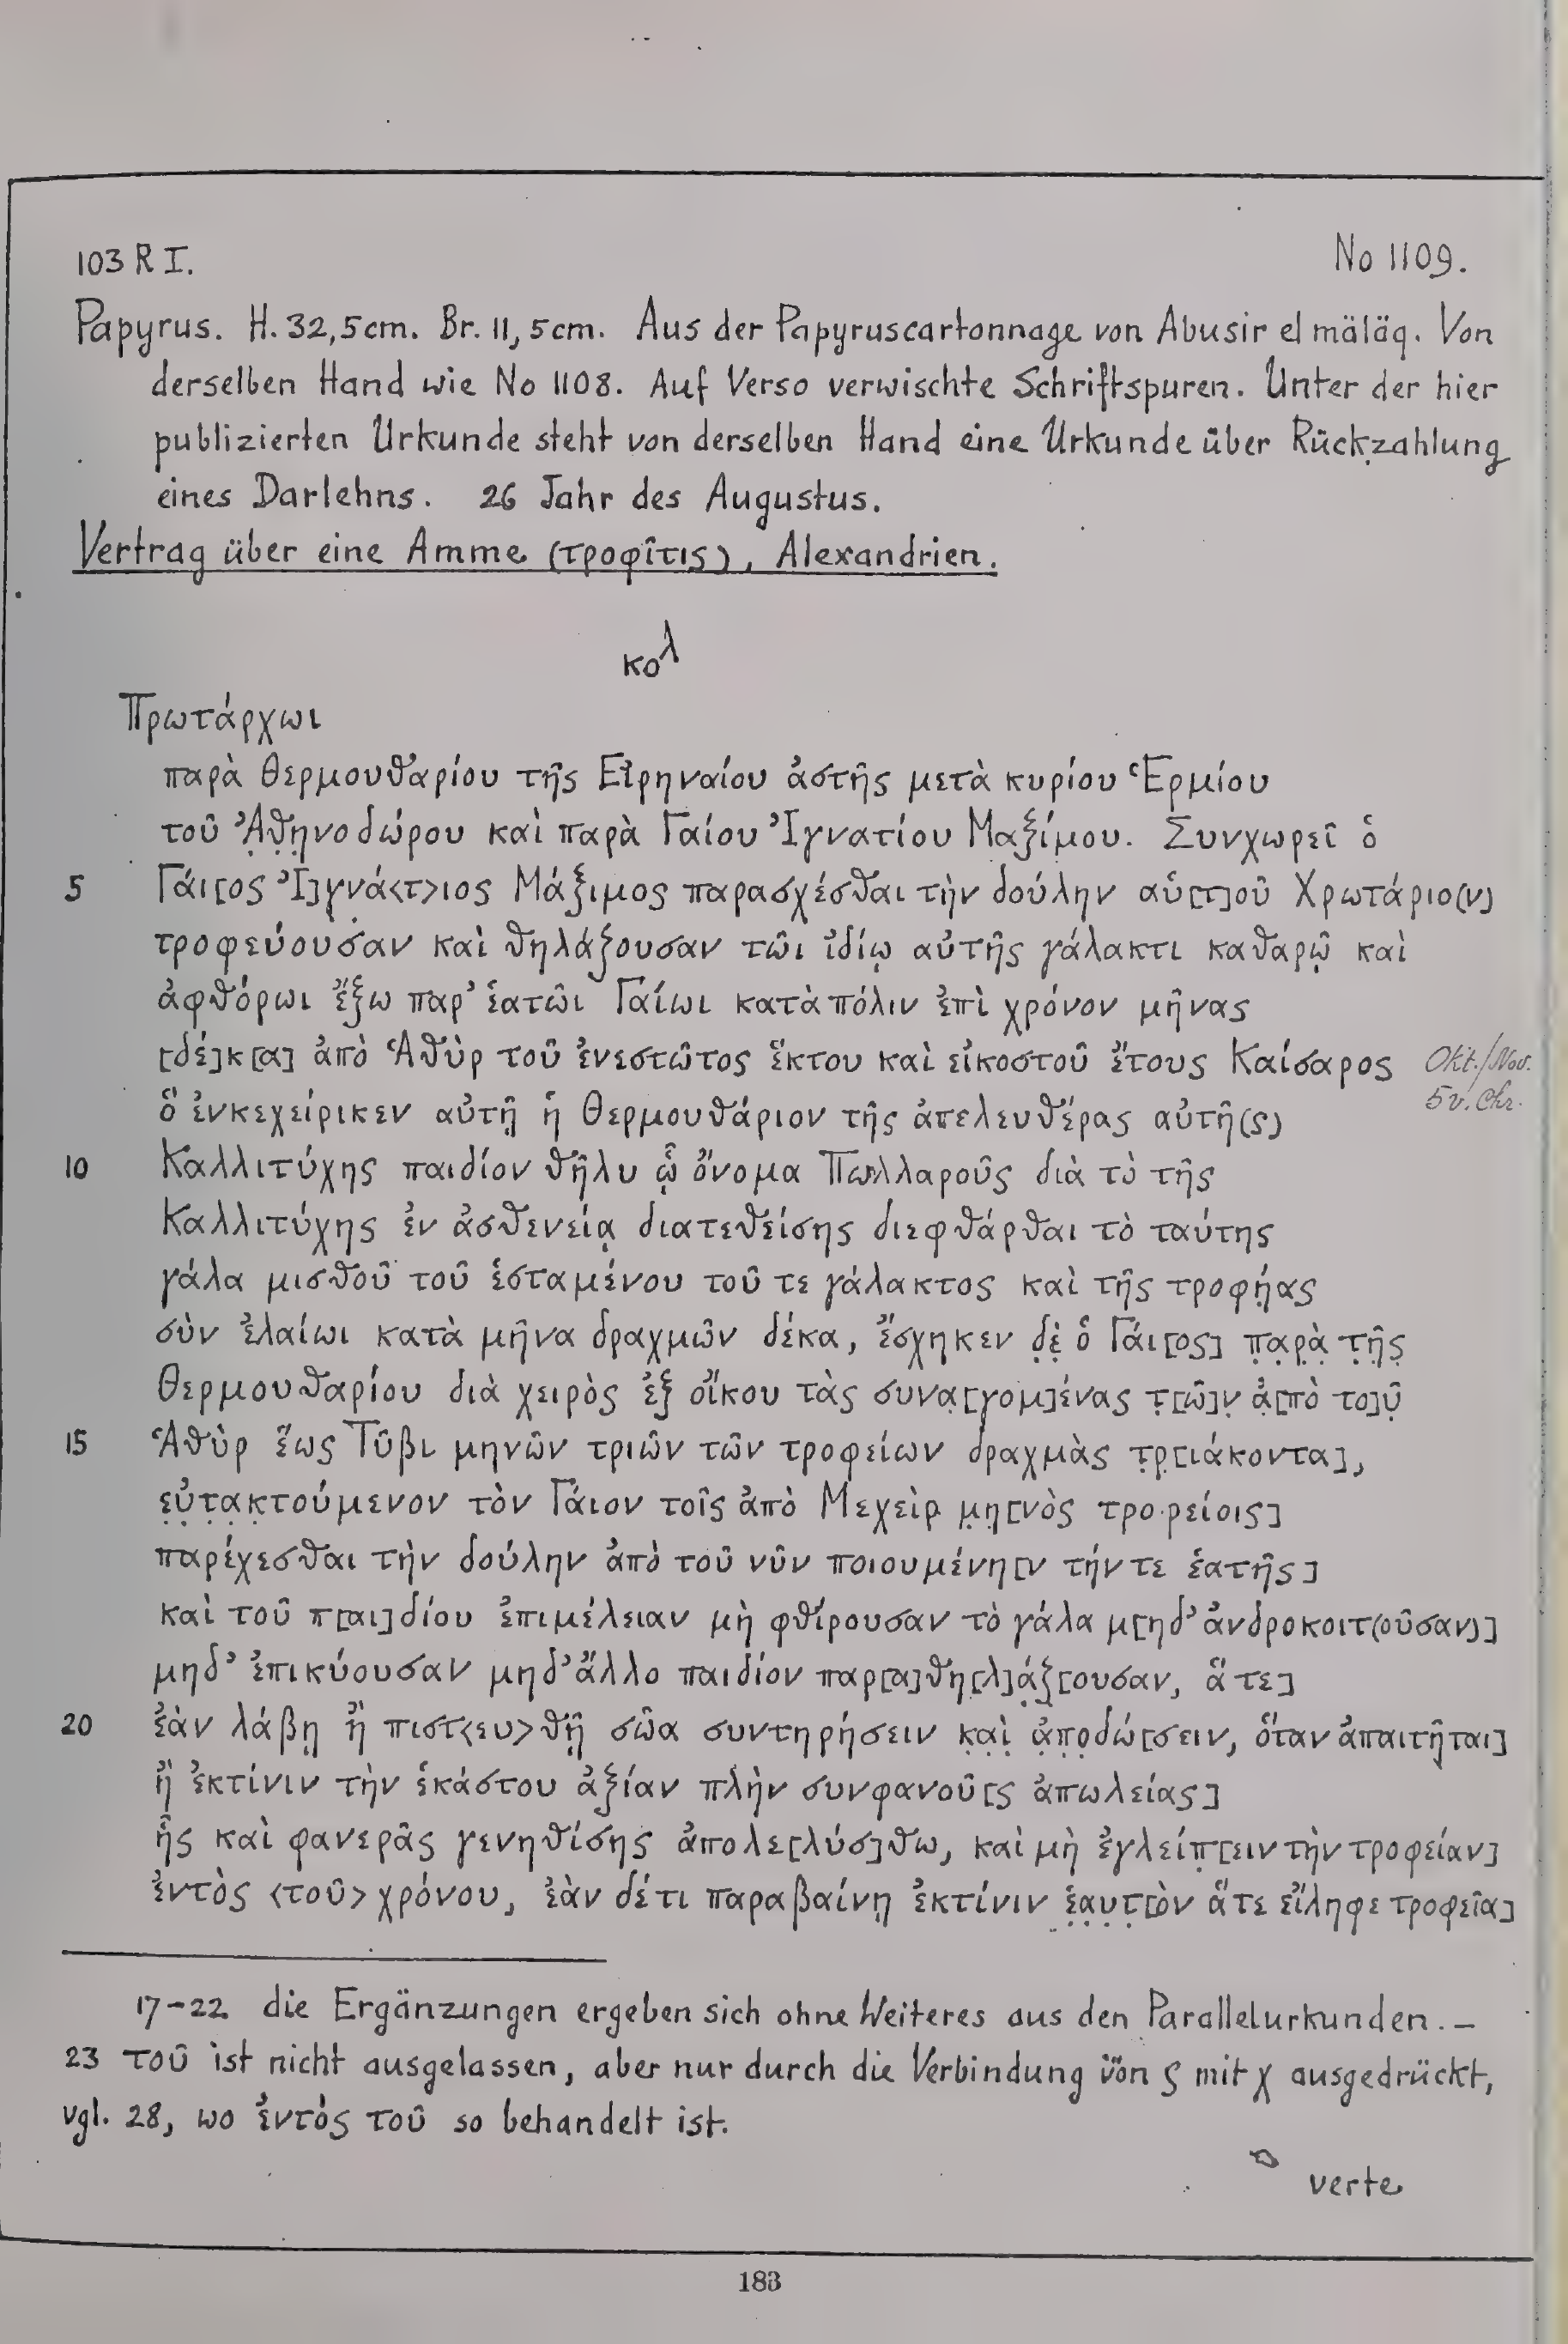 103 R I. No 1109.
Papyrus. H. 32,5cm. Br. 11,5cm. Aus der Papyruscartonnage von Abusir el mäläq. Von
derselben Hand wie No 1108. Auf Verso verwischte Schriftspuren. Unter der hier
publizierten Urkunde steht von derselben Hand eine Urkunde über Rückzahlung
eines Darlehns. 26 Jahr des Augustus.
Vertrag über eine Amme (τροφῖτις), Alexandrien.
κολ
Πρωτάρχωι
παρὰ Θερμουθαρίου τῆς Εἰρηναίου ἀστῆς μετὰ κυρίου Ἑρμίου
τοῦ Ἀ̣θ̣η̣νοδώρου καὶ παρὰ Γαίου Ἰγνατίου Μαξίμου. Συνχωρεῖ ὁ
5 Γάι[ος Ἰ]γνά<τ>ιος Μάξιμος παρασχέσθαι τὴν δούλην αὑ[τ]οῦ Χρωτάριο(ν)
τροφεύουσαν καὶ θηλάζουσαν τῶι ἰδίῳ αὐτῆς γάλακτι καθαρῷ καὶ
ἀφθόρωι ἔξω παρ’ ἑατῶι Γαίωι κατὰ πόλιν ἐπὶ χρόνον μῆνας
[δέ]κ[α] ἀπὸ Ἁθὺρ τοῦ ἐνεστῶτος ἕκτου καὶ εἰκοστοῦ ἔτους Καίσαρος Okt./Nov.
5 v. Chr.
ὃ ἐνκεχείρικεν αὐτῇ ἡ Θερμουθάριον τῆς ἀπελευθέρας αὐτῆ(ς)
10 Καλλιτύχης παιδίον θῆλυ ᾧ ὄνομα Πωλλαροῦς διὰ τὸ τῆς
Καλλιτύχης ἐν ἀσθενείᾳ διατεθείσης διεφθάρθαι τὸ ταύτης
γάλα μισθοῦ τοῦ ἑσταμένου τοῦ τε γάλακτος καὶ τῆς τροφή̣ας
σὺν ἐλαίωι κατὰ μῆνα δραχμῶν δέκα, ἔσχηκεν δ̣ὲ̣ ὁ Γάι[ος] π̣α̣ρ̣ὰ̣ τ̣ῆ̣ς̣
Θερμουθαρίου διὰ χειρὸς ἐξ οἴκου τὰς συνα̣[γομ]ένας τ̣[ῶ]ν̣ ἀ̣[πὸ το]ῦ̣
15 Ἁθὺρ ἕως Τῦβι μηνῶν τριῶν τῶν τροφείων δραχμὰς τ̣ρ̣[ιάκοντα],
ε̣ὐ̣τ̣α̣κ̣τούμενον τὸν Γάιον τοῖς ἀπὸ Μεχεὶρ̣ μ̣η̣[νὸς τροφείοις]
παρέχεσθαι τὴν δούλην ἀπὸ τοῦ νῦν ποιουμένη[ν τήν τε ἑατῆς]
καὶ τοῦ π[αι]δίου ἐπιμέλειαν μὴ φθίρουσαν τὸ γάλα μ[ηδ’ ἀνδροκοιτ(οῦσαν)]
μηδ’ ἐπικύουσαν μηδ’ ἄλλο παιδίον παρ[α]θη[λ]ά̣ζ̣[ουσαν, ἅ τε]
20 ἐὰν λάβῃ ἢ πιστ<ευ>θῇ σῶα συντηρήσειν κ̣α̣ὶ̣ ἀ̣π̣ο̣δώ[σειν, ὅταν ἀπαιτῆται]
ἢ ἐκτίνιν τὴν ἑκάστου ἀξίαν πλὴν συνφανοῦ[ς ἀπωλείας]
ἧς καὶ φανερᾶς γενηθίσης ἀπολε[λύσ]θω, καὶ μὴ ἐγλείπ̣[ειν τὴν τροφείαν]
ἐντὸς <τοῦ> χρόνου, ἐὰν δέ τι παραβαίνῃ ἐκτίνιν ἑ̣α̣υ̣τ̣[ὸν ἅ τε εἴληφε τροφεῖα]
17-22 die Ergänzungen ergeben sich ohne Weiteres aus den Parallelurkunden. –
23 τοῦ ist nicht ausgelassen, aber nur durch die Verbindung von ς mit χ ausgedrückt,
vgl. 28, wo ἐντὸς τοῦ so behandelt ist.
verte
183